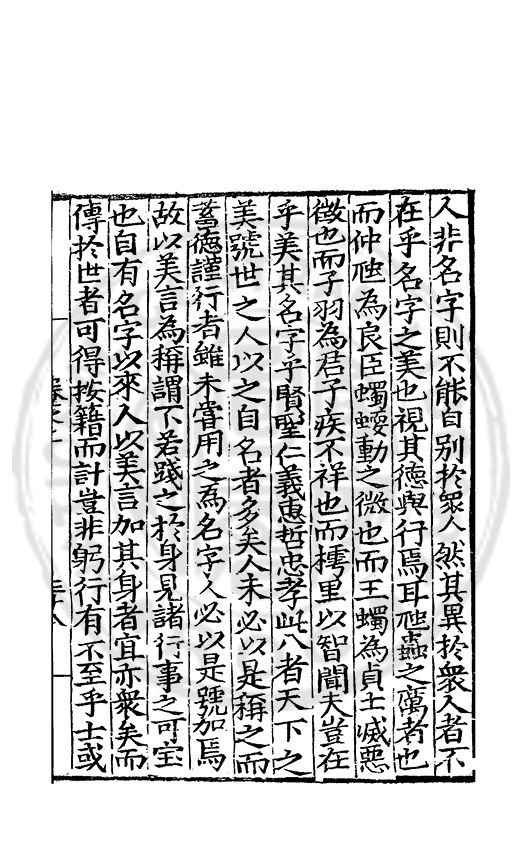 人非名字則不能自別於眾人然其異於衆人者不
在乎名字之美也視其德與行焉耳虺蟲之厲者也
而仲虺為良臣蠋蝡動之微也而王蠋為貞士滅惡
徵也而子羽為君子疾不祥也而樗里以智聞夫豈在
乎美其名字乎賢聖仁義惠哲忠孝此八者天下之
美號世之人以之自名者多矣人未必以是稱之而
蓄德謹行者雖未甞用之為名字人必以是號加焉
故以美言為稱謂下若踐之於身見諸行事之可寳
也自有名字以來人以美言加其身者宜亦衆矣而
傳於世者可得按籍而計豈非躬行有不至乎士或